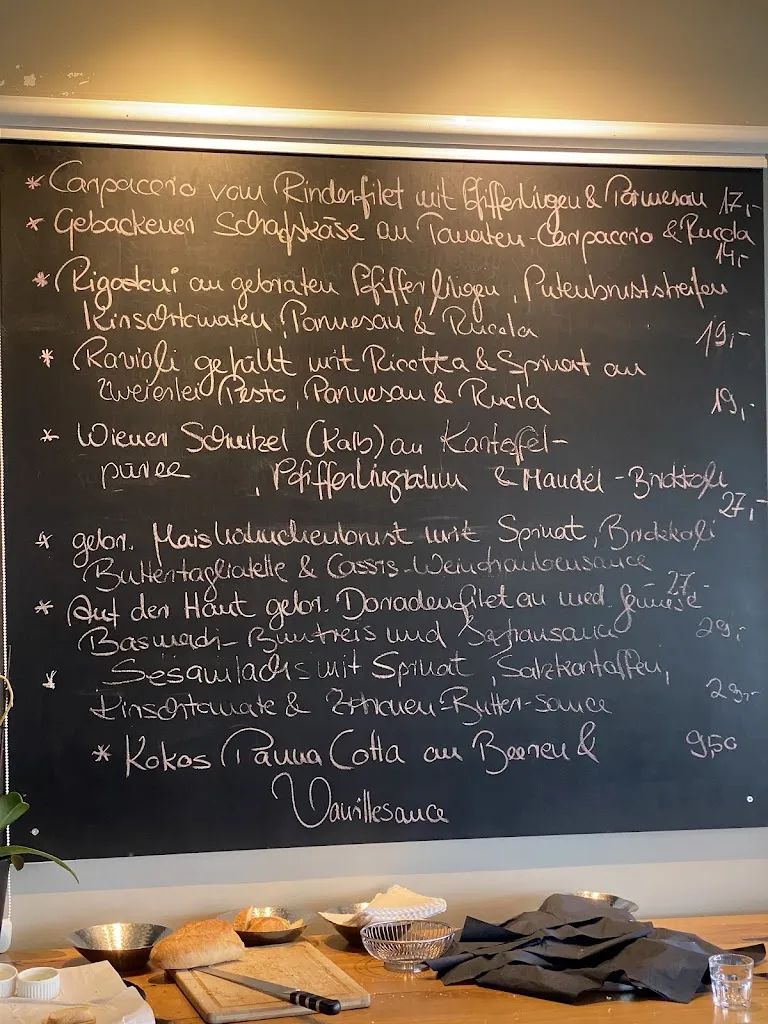 * Carpaccio vom Rinderfilet mit Pfifferlingen & Parmesan 17,-
* Gebackener Schafskäse an Tomaten-Carpaccio & Rucola
14,-
* Rigatoni an gebraten Pfifferlingen, Putenbruststreifen
Kirschtomaten, Parmesan & Rucola
19,-
* Ravioli gefüllt mit Ricotta & Spinat an
Zweierlei Pesto, Parmesan & Rucla
19,-
* Wiener Schnitzel (Kalb) an Kartoffel-
püree , Pfifferlingrahm & Mandel-Brokkoli
27,-
* gebr. Maishähnchenbrust mit Spinat, Brokkoli
Buttertagliatelle & Cassis-Weinschaumsauce
27,-
* Auf der Haut gebr. Doradenfilet an med. Gemüse
Basmati- und Safransauce 29,-
* Sesamlachs mit Spinat, Salzkartoffeln,
Kirschtomate & Zitronen-Butter-Sauce 29,-
* Kokos Panna Cotta an Beeren & 9,50
Vanillesauce